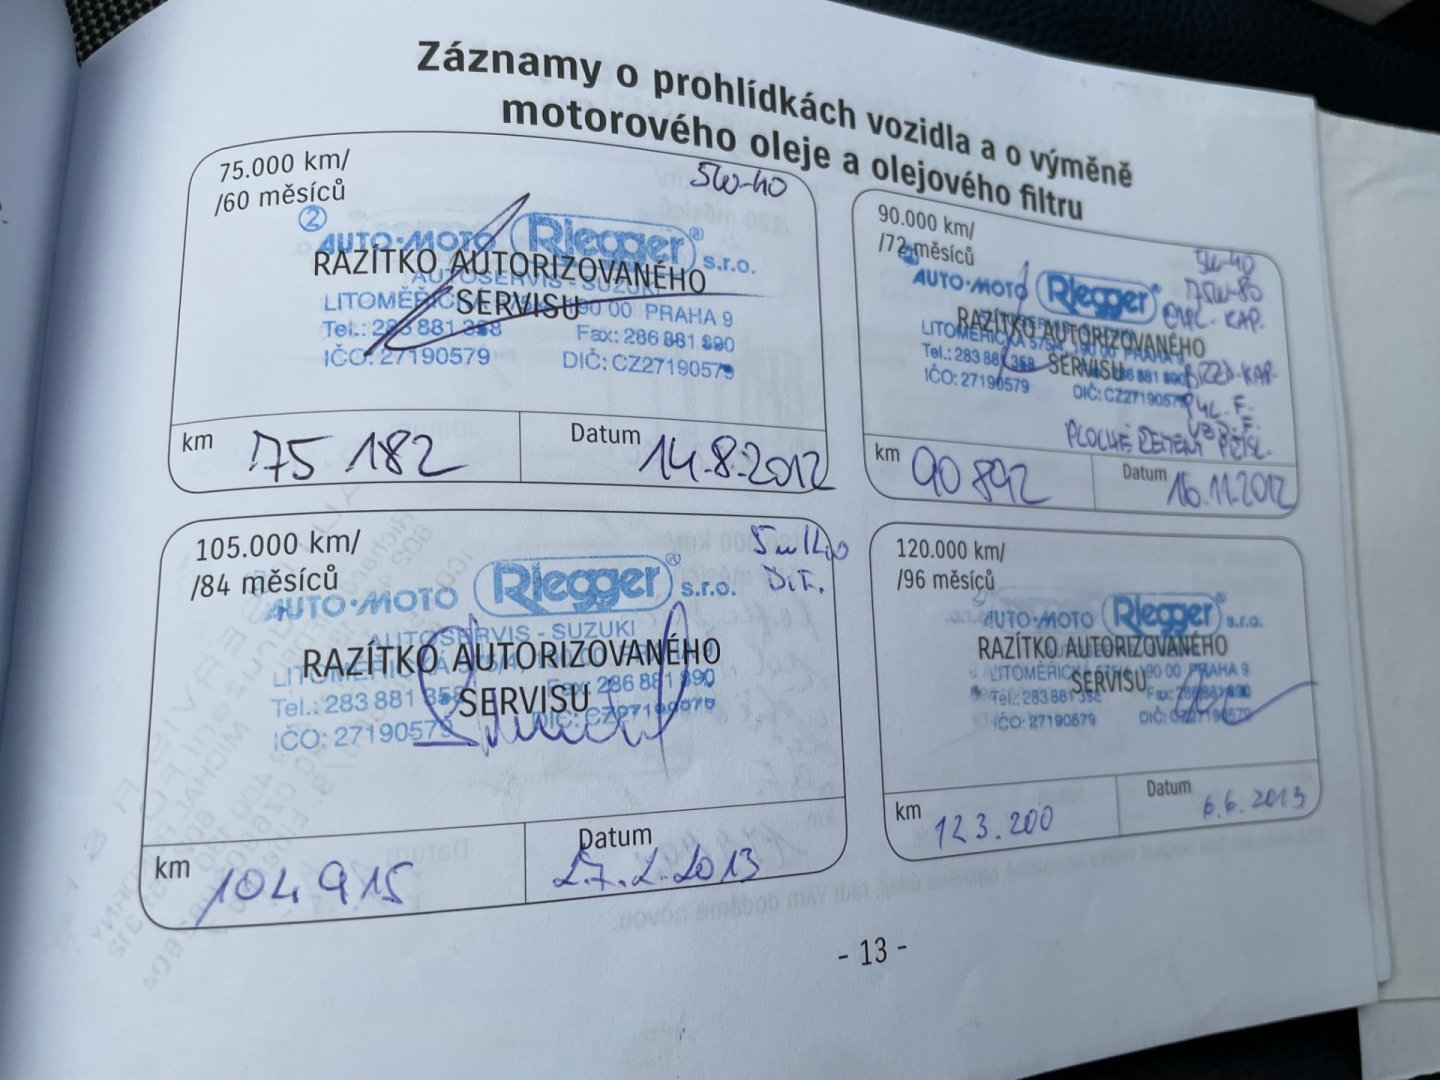 Záznamy o prohlídkách vozidla a o výměně
motorového oleje a olejového filtru
75.000 km/
/60 měsíců
5W-40
2
AUTO·MOTO Riegger® s.r.o.
RAZÍTKO AUTORIZOVANÉHO
AUTOSERVIS - SUZUKI
SERVISU
LITOMĚŘICKÁ 190 00 PRAHA 9
Tel.: 283 881 358 Fax: 286 881 890
IČO: 27190579 DIČ: CZ27190579
km 75 182
Datum 14.8.2012
90.000 km/
/72 měsíců
5W-40
75W-80
AUTO·MOTO Riegger®
KAP.
RAZÍTKO AUTORIZOVANÉHO
LITOMĚŘICKÁ 575/4, 190 00 PRAHA 9
SERVISU
Tel.: 283 881 358 286 881 890
BRZD. KAP.
IČO: 27190579 DIČ: CZ27190579
PYL. F.
VZD. F.
PLOCHÉ
km 90 892
Datum 16.11.2012
105.000 km/
/84 měsíců
5W40
AUTO·MOTO Riegger® s.r.o.
AUTOSERVIS - SUZUKI
RAZÍTKO AUTORIZOVANÉHO
LITOMĚŘICKÁ 575/4, 190 00 PRAHA 9
SERVISU
Tel.: 283 881 358 Fax: 286 881 890
IČO: 27190579 DIČ: CZ27190579
km 104 915
Datum 27.2.2013
120.000 km/
/96 měsíců
AUTO·MOTO Riegger® s.r.o.
RAZÍTKO AUTORIZOVANÉHO
LITOMĚŘICKÁ 575/4, 190 00 PRAHA 9
SERVISU
Tel.: 283 881 358 Fax: 286 881 890
IČO: 27190579 DIČ: CZ27190579
km 123.200
Datum 6.6.2013
- 13 -